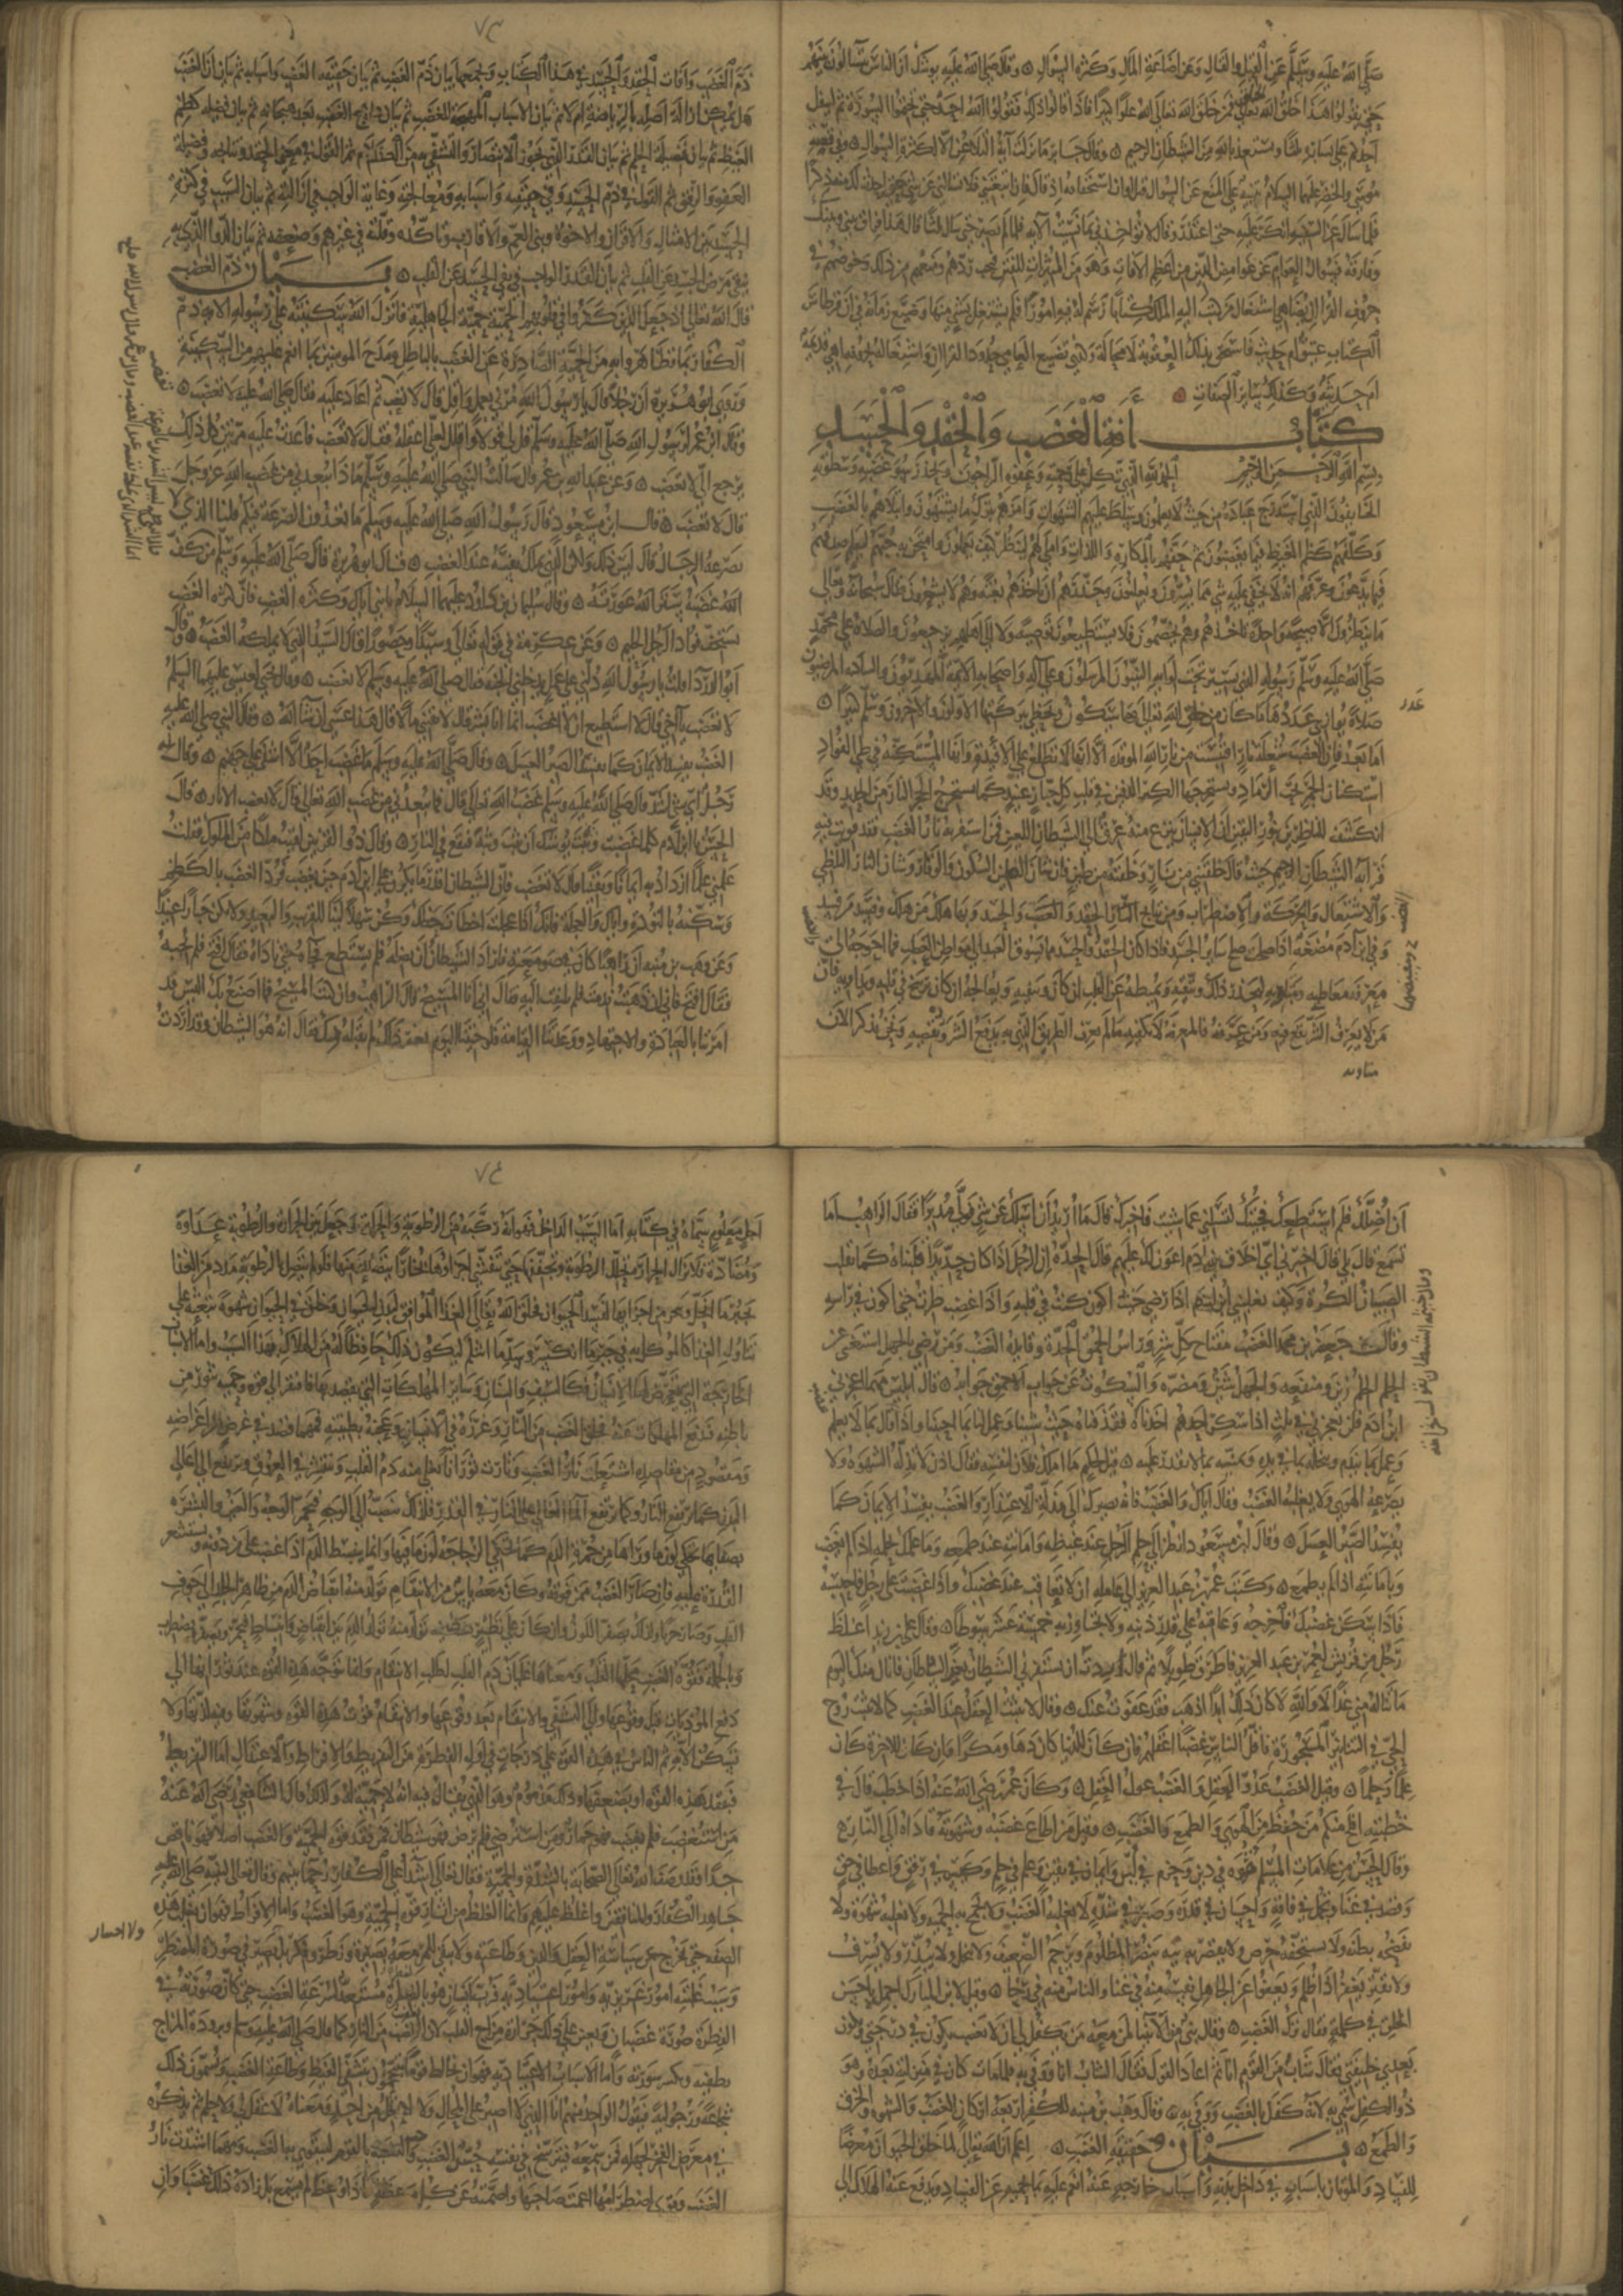 صلى الله عليه وسلم عن القيل والقال وعن اضاعة المال وكثرة السؤال ۞ وقال صلى الله عليه يوشك ان الناس يتسالون بينهم
حتى يقولوا هذا خلق الله تعالى الخلق فمن خلق الله تعالى الله علوا كبيرا فاذا قالوا ذلك فقولوا الله احد حتى تختموا السورة ثم ليتفل
احدكم على يساره ثلثا وليستعذ بالله من الشيطان الرجيم ۞ وقال جابر ما نزلت آية التلاعن الا لكثرة السؤال ۞ وفي قصة
موسى والخضر عليهما السلام تنبيه على المنع من السؤال قبل اوان استحقاقه اذ قال فان اتبعتني فلا تسالني عن شي حتى احدث لك منه ذكرا
فلما سال عن السفينة انكر عليه حتى اعتذر وقال لا تؤاخذني بما نسيت الآية فلما لم يصبر حتى سال ثلثا قال هذا فراق بيني وبينك
وفارقه فسؤال العوام عن غوامض الدين من اعظم الآفات وهو من المثيرات للفتن فيجب ردهم ومنعهم من ذلك وخوضهم في
حروف القران يضاهي اشتغال من كتب اليه الملك كتابا رسم له فيه امورا فلم يشتغل بشي منها وضيع زمانه في ان قرطاس
الكتاب عتيق ام حديث فاستحق بذلك العقوبة لا محالة فكذلك تضييع العامي حدود القران واشتغاله بحروفه اهي قديمة
ام حديثة وكذلك سائر الصفات ۞
كتاب آفة الغضب والحقد والحسد
بسم الله الرحمن الرحيم الحمد لله الذي لا يتكل على رحمته وعفوه الا الراجون ولا يحذر سوء غضبه وسطوته
الا الخائفون الذي استدرج عباده من حيث لا يعلمون وسلط عليهم الشهوات وامرهم بترك ما يشتهون وابتلاهم بالغضب
وكلفهم كظم الغيظ فيما يغضبون ثم حفهم بالمكاره واللذات واملى لهم لينظر كيف يعملون وامتحن به حبهم ليعلم صدقهم
فيما يدعون وعرفهم انه لا يخفى عليه شي مما يسرون ويعلنون وحذرهم ان ياخذهم بغتة وهم لا يشعرون فقال سبحانه وتعالى
ما ينظرون الا صيحة واحدة تاخذهم وهم يخصمون فلا يستطيعون توصية ولا الى اهلهم يرجعون والصلاة على محمد
صلى الله عليه وسلم رسوله الذي يسير تحت لوائه النبيون المرسلون وعلى آله واصحابه الائمة المهديون والسادة المرضيون
صلاة يوازي عددها ما كان من خلق الله تعالى وما سيكون ويحظى ببركتها الاولون والآخرون وسلم كثيرا ۞
اما بعد فان الغضب شعلة نار اقتبست من نار الله الموقدة الا انها لا تطلع على الافئدة وانها المستكنة في طي الفؤاد
استكنان الجمر تحت الرماد ويستخرجها الكبر الدفين في قلب كل جبار عنيد كما يستخرج الحجر النار من الحديد وقد
انكشف للناظرين بنور اليقين ان الانسان ينزع منه عرق الى الشيطان اللعين فمن استفزته نار الغضب فقد قويت فيه
قرابة الشيطان الرجيم حيث قال خلقتني من نار وخلقته من طين فان شان الطين السكون والوقار وشان النار التلظي
والاشتعال والحركة والاضطراب ومن نتائج النار الحقد والغضب والحسد وبهما هلك من هلك وفسد من فسد
وفي ابن آدم مضغة اذا صلحت صلح سائر الجسد فاذا كان الحقد والحسد مما يسوق العبد الى مواطن العطب فما احوجه الى
معرفة معاطبه ومساويه ليحذر ذلك ويتقيه ويميطه عن القلب ان كان وينفيه ويعالجه ان كان رسخ في قلبه ويداويه فان
من لا يعرف الشر يقع فيه ومن عرفه فالمعرفة لا تكفيه ما لم يعرف الطريق الذي به يدفع الشر ويقصيه ونحن نذكر الآن
عدد
٧٣
ذم الغضب وآفات الحقد والحسد في هذا الكتاب ويجمعها بيان ذم الغضب ثم بيان حقيقة الغضب واسبابه ثم بيان ان الغضب
هل يمكن ازالة اصله بالرياضة ام لا ثم بيان الاسباب المهيجة للغضب ثم بيان علاج الغضب بعد هيجانه ثم بيان فضيلة كظم
الغيظ ثم بيان فضيلة الحلم ثم بيان القدر الذي يجوز الانتصار والتشفي به من الكلام ثم القول في معنى الحقد ونتائجه وفضيلة
العفو والرفق ثم القول في ذم الحسد وفي حقيقته واسبابه ومعالجته وغاية الواجب في ازالته ثم بيان السبب في كثرة
الحسد بين الامثال والاقران والاخوة وبني العم والاقارب وتاكده وقلته في غيرهم وضعفه ثم بيان الدوا الذي به
ينفي مرض الحسد عن القلب ثم بيان القدر الواجب في نفي الحسد عن القلب ۞ بيان ذم الغضب
قال الله تعالى اذ جعل الذين كفروا في قلوبهم الحمية حمية الجاهلية فانزل الله سكينته على رسوله الآية ذم
الكفار بما تظاهروا به من الحمية الصادرة عن الغضب بالباطل ومدح المومنين بما انعم عليهم من السكينة
وروى ابو هريرة ان رجلا قال يا رسول الله مرني بعمل واقل قال لا تغضب ثم اعاد عليه فقال صلى الله عليه لا تغضب ۞
وقال ابن عمر لرسول الله صلى الله عليه وسلم قل لي قولا واقلل لعلي اعقله فقال لا تغضب فاعدت عليه مرتين كل ذلك
يرجع الي لا تغضب ۞ وعن عبد الله بن عمر قال سالت النبي صلى الله عليه وسلم ما ذا يبعدني من غضب الله عز وجل
قال لا تغضب ۞ قال ابن مسعود قال رسول الله صلى الله عليه وسلم ما تعدون الصرعة فيكم قلنا الذي لا
تصرعه الرجال قال ليس ذلك ولكن الذي يملك نفسه عند الغضب ۞ قال ابو هريرة قال صلى الله عليه وسلم من كف
غضبه ستر الله عورته ۞ وقال سليمان بن داود عليهما السلام يا بني اياك وكثرة الغضب فان كثرة الغضب
تستخف فؤاد الرجل الحليم ۞ وعن عكرمة في قوله تعالى وسيدا وحصورا قال السيد الذي لا يملكه الغضب ۞ وقال
ابو الدرداء قلت يا رسول الله دلني على عمل يدخلني الجنة قال صلى الله عليه وسلم لا تغضب ۞ وقال يحيى لعيسى عليهما السلم
لا تغضب يا اخي قال لا استطيع ان لا اغضب انما انا بشر قال لا تقتني مالا قال هذا عسى ان شا الله ۞ وقال النبي صلى الله عليه
الغضب يفسد الايمان كما يفسد الصبر العسل ۞ وقال صلى الله عليه وسلم ما غضب احد الا اشفى على جهنم ۞ وقال له
رجل اي شي اشد قال صلى الله عليه وسلم غضب الله تعالى قال فما يبعدني من غضب الله تعالى قال لا تغضب الآثار ۞ قال
الحسن يا ابن آدم كلما غضبت وثبت يوشك ان تثب وثبة فتقع في النار ۞ وقال ذو القرنين لقيت ملكا من الملوك فقلت
علمني علما ازداد به ايمانا ويقينا قال لا تغضب فان الشيطان اقدر ما يكون على ابن آدم حين يغضب فرد الغضب بالكظم
وسكنه بالتؤدة واياك والعجلة فانك اذا عجلت اخطات حظك وكن سهلا لينا للقريب والبعيد ولا تكن جبارا عنيدا
وعن وهب بن منبه ان راهبا كان في صومعته فاراد الشيطان ان يضله فلم يستطع فجاءه حتى ناداه فقال افتح فلم يجبه
فقال افتح فاني ان ذهبت ندمت فلم يلتفت اليه فقال اني انا المسيح قال الراهب وان كنت المسيح فما اصنع بك اليس قد
امرتنا بالعبادة والاجتهاد ووعدتنا القيامة فلو جئتنا اليوم بغيره لم نقبله منك فقال انه هو الشيطان وقد اردت
ان اضلك فلم استطعك فجئتك لتسلني عما شيت فاخبرك قال ما اريد ان اسلك عن شي فولى مدبرا فقال الراهب اما
تسمع قال بلى قال اخبرني اي اخلاق بني ادم اعون لك عليهم قال الحدة ان الرجل اذا كان حديدا قلبناه كما تقلب
الصبيان الكرة وكيف يغلبني ابن ادم اذا رضي جئت اكون في قلبه واذا غضب طرت حتى اكون في راسه
وقال جعفر بن محمد الغضب مفتاح كل شر وراس الحمق الحدة وقائده الغضب ومن رضي بالجهل استغنى عن
الحلم الحلم زين ومنفعة والجهل شين ومضرة والسكوت عن جواب الاحمق جوابه قال ابليس مهما اعجزني
ابن آدم فلن يعجزني في ثلث اذا سكر احدهم اخذناه فقدناه حيث شينا وعمل لنا بما احببنا واذا قال بما لا يعلم
وعمل بما يندم وبخله بما في يده ومنيه بما لا يقدر عليه ۞ قيل لحكيم ما املك فلان لنفسه فقال اذن لا تذله الشهوة ولا
يصرعه الهوى ولا يغلبه الغضب وقال اياك والغضب فانه يصيرك الى مذلة الاعتذار والغضب يفسد الايمان كما
يفسد الصبر العسل ۞ وقال ابن مسعود انظر الى حلم الرجل عند غضبه وامانته عند طمعه وما علمك بحلمه اذا لم يغضب
وبامانته اذا لم يطمع ۞ وكتب عمر بن عبد العزيز الى عامله ان لا تعاقب عند غضبك واذا غضبت على رجل فاحبسه
فاذا سكن غضبك فاخرجه وعاقبه على قدر ذنبه ولا تجاوز به خمسة عشر سوطا ۞ وقال علي بن زيد اغلظ
رجل من قريش لعمر بن عبد العزيز فاطرق طويلا ثم قال اردت ان يستفزني الشيطان بعز السلطان فانال منك اليوم
ما تناله مني غدا لا والله لا كان ذلك ابدا اذهب فقد عفوت عنك ۞ وقال لا يثبت العقل عند الغضب كما لا تثبت روح
الحي في التنانير المسجورة فاقل الناس غضبا اعقلهم فان كان للدنيا كان دهاء ومكرا وان كان للاخرة كان
علما وحلما ۞ وقيل الغضب عدو العقل والغضب غول العقل ۞ وكان عمر رضي الله عنه اذا خطب قال في
خطبته افلح منكم من حفظ من الهوى والطمع والغضب ۞ وقيل من اطاع غضبه وشهوته قاداه الى النار ۞
وقال الحسن من علامات المسلم قوة في دين وحزم في لين وايمان في يقين وعلم في حلم وكيس في رفق واعطا في حق
وقصد في غنا وتجمل في فاقة واحسان في قدرة وصبر في شدة لا يغلبه الغضب ولا تجمح به الحمية ولا تغلبه شهوة ولا
تفضحه بطنه ولا يستخفه حرص ولا تقصر به نيته ينصر المظلوم ويرحم الضعيف ولا يبخل ولا يبذر ولا يسرف
ولا يقتر يغفر اذا ظلم ويعفو عن الجاهل نفسه منه في عنا والناس منه في رخا ۞ وقيل لابن المبارك اجمل لنا حسن
الخلق في كلمة فقال ترك الغضب ۞ وقال نبي من الانبيا لمن معه من يكفل لي ان لا يغضب يكون في درجتي ويكون
بعدي خليفتي فقال شاب من القوم انا ثم اعاد القول فقال الشاب انا وفى به فلما مات كان في منزلته بعده وهو
ذو الكفل سمي به لانه كفل بالغضب ووفى به ۞ وقال وهب بن منبه للكفر اربعة اركان الغضب والشهوة والخرق
والطمع ۞ بيان حقيقة الغضب ۞ اعلم ان الله تعالى لما خلق الحيوان معرضا
للفساد والموتان باسباب في داخل بدنه واسباب خارجة عنه انعم عليه بما يحميه عن الفساد ويدفع عنه الهلاك الى
٧٤
اجل معلوم سماه في كتابه اما السبب الداخل فهو انه ركبه من الرطوبة والحرارة وجعل بين الحرارة والرطوبة عداوة
ومضادة فلا تزال الحرارة تحلل الرطوبة وتجففها حتى تتفشى اجزاؤها بخارا يتصاعد منها فلو لم يتصل بالرطوبة مدد من الغذا
يجبر ما انحل وتبخر من اجزائها لفسد الحيوان فخلق الله تعالى الغذا الموافق لبدن الحيوان وخلق في الحيوان شهوة تبعثه على
تناول الغذا كالموكل به في جبر ما انكسر وسد ما انثلم ليكون ذلك حافظا له من الهلاك بهذا السبب واما الاسباب
الخارجة التي يتعرض لها الانسان فكالسيف والسنان وسائر المهلكات التي يقصد بها فافتقر الى قوة وحمية تثور من
باطنه فتدفع المهلكات عنه فخلق الغضب من النار وغرزه في الانسان وعجنه بطينته فمهما قصد في غرض من اغراضه
ومقصود من مقاصده اشتعلت نار الغضب وثارت ثورانا يغلي منه دم القلب وينتشر في العروق ويرتفع الى اعالي
البدن كما ترتفع النار وكما يرتفع الماء الغالي على النار في القدر فلذلك ينصب الى الوجه فيحمر الوجه والعين والبشرة
بصفائها تحكي لون ما وراءها من حمرة الدم كما تحكي الزجاجة لون ما فيها وانما ينبسط الدم اذا غضب على من دونه واستشعر
القدرة عليه فان صدر الغضب ممن فوقه وكان معه ياس من الانتقام تولد منه انقباض الدم من ظاهر الجلد الى جوف
القلب وصار حزنا ولذلك يصفر اللون وان كان على نظير شك فيه تولد منه تردد الدم بين انقباض وانبساط فيحمر ويصفر ويضطرب
وبالجملة فقوة الغضب محلها القلب ومعناها غليان دم القلب لطلب الانتقام وانما تتوجه هذه القوة عند ثورانها الى
دفع المؤذيات قبل وقوعها والى التشفي والانتقام بعد وقوعها والانتقام قوت هذه القوة وشهوتها وفيه لذتها ولا
تسكن الا به ثم الناس في هذه القوة على درجات في اول الفطرة من التفريط والافراط والاعتدال اما التفريط
فبفقد هذه القوة او بضعفها وذلك مذموم وهو الذي يقال فيه انه لا حمية له ولذلك قال الشافعي رضي الله عنه
من استغضب فلم يغضب فهو حمار ومن استرضي فلم يرض فهو شيطان فمن فقد قوة الحمية والغضب اصلا فهو ناقص
جدا فقد وصف الله تعالى الصحابة بالشدة والحمية فقال تعالى اشداء على الكفار رحماء بينهم وقال تعالى لنبيه صلى الله عليه
جاهد الكفار والمنافقين واغلظ عليهم وانما الغلظة من آثار قوة الحمية وهو الغضب واما الافراط فهو ان تغلب هذه
الصفة حتى تخرج عن سياسة العقل والدين وطاعته ولا يبقى للمرء معه بصيرة ونظر وفكر بل يصير في صورة المضطر
وسبب غلبته امور غريزية وامور اعتيادية فرب انسان هو بالفطرة مستعد لسرعة الغضب حتى كان صورته في
الفطرة صورة غضبان ويعين على ذلك حرارة مزاج القلب لان الغضب من النار كما قال صلى الله عليه وسلم وبرودة المزاج
تطفيه وتكسر سورته واما الاسباب الاعتيادية فهو ان يخالط قوما يتبجحون بتشفي الغيظ وطاعة الغضب ويسمون ذلك
شجاعة ورجولية فيقول الواحد منهم انا الذي لا اصبر على المحال ولا احتمل من احد ومعناه لا عقل لي ولا حلم ثم يذكره
في معرض الفخر لجهله فمن سمعه فيترسخ في نفسه حسن الغضب وحب التشبه بالقوم فيقوى به الغضب ومهما اشتدت نار
الغضب وقوي اضطرامها اعمت صاحبها واصمته عن كل موعظة فاذا وعظ لم يسمع بل زاده ذلك غضبا وان
ولا احتمال